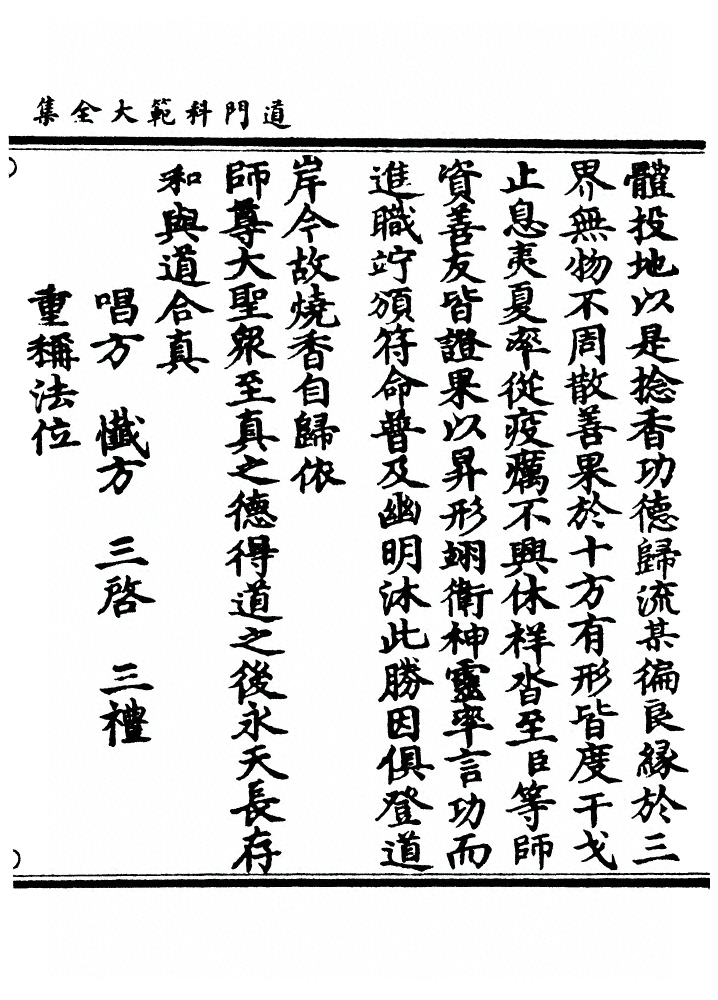 道門科範大全集
體投地以是捻香功德歸流某徧良緣於三
界無物不周散善果於十方有形皆度干戈
止息夷夏率從疫癘不興休祥沓至臣等師
資善友皆證果以昇形翊衛神靈率言功而
進職竚頒符命普及幽明沐此勝因俱登道
岸今故燒香自歸依
師尊大聖衆至真之德得道之後永天長存
和與道合真
唱方 懺方 三啓 三禮
重稱法位